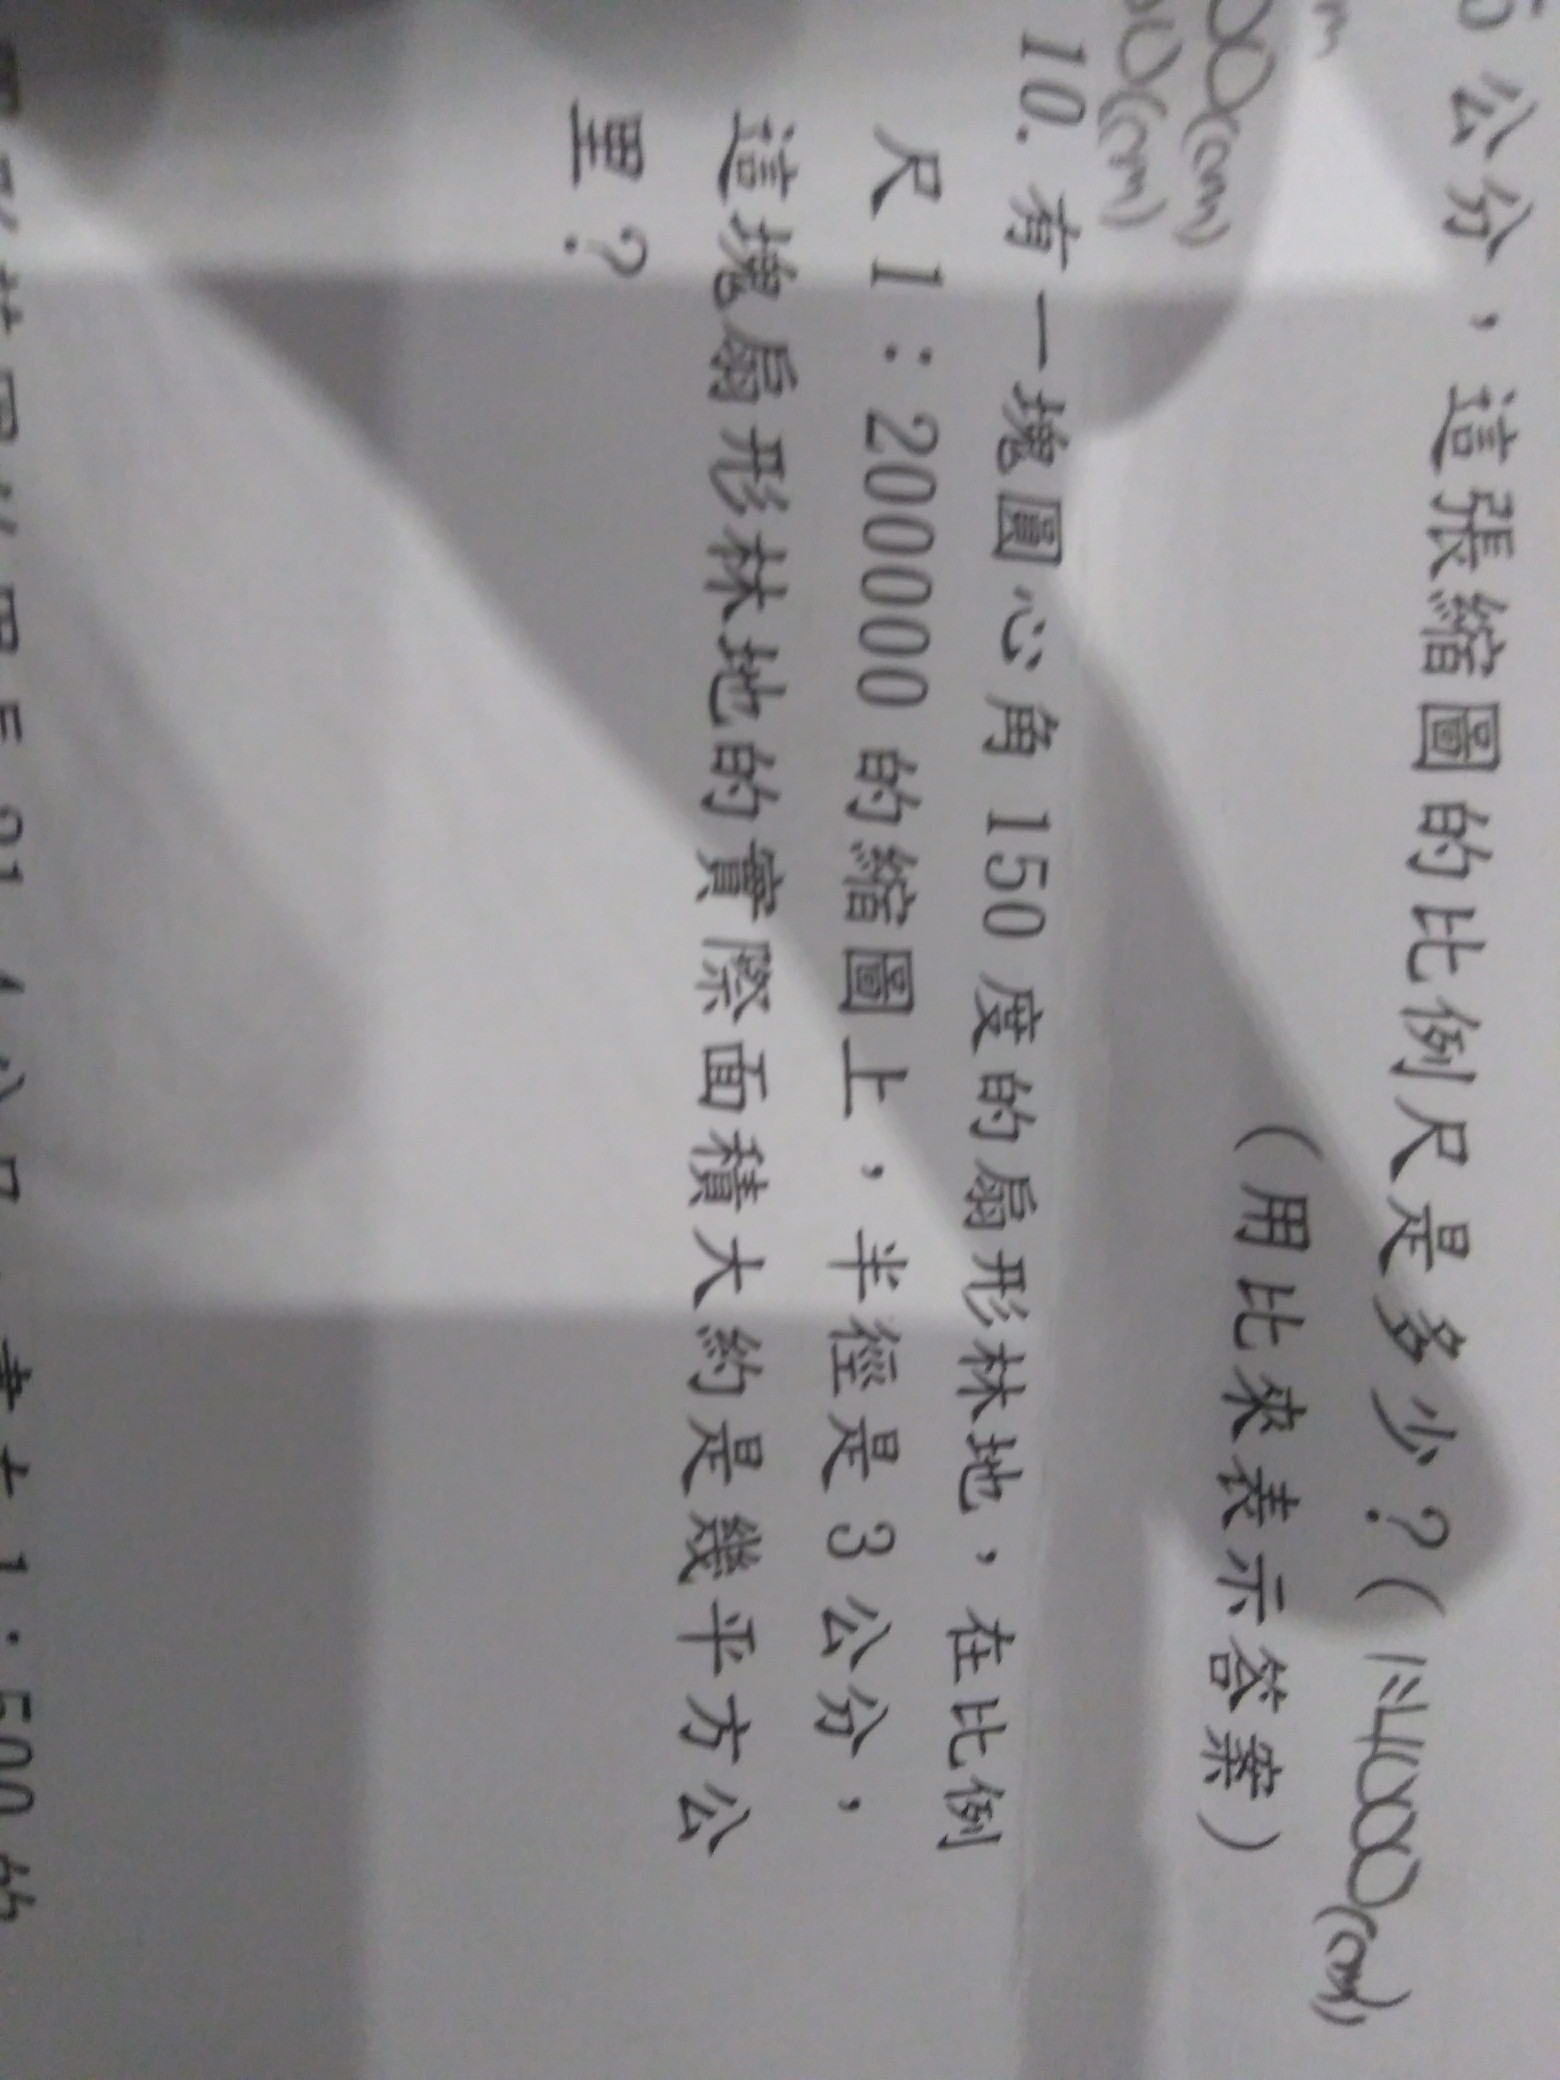 5 公分，這張縮圖的比例尺是多少？(
(cm)
（用比來表示答案）
(cm)
(cm)
10. 有一塊圓心角 150 度的扇形林地，在比例
尺 1：2000000 的縮圖上，半徑是 3 公分，
這塊扇形林地的實際面積大約是幾平方公
里？